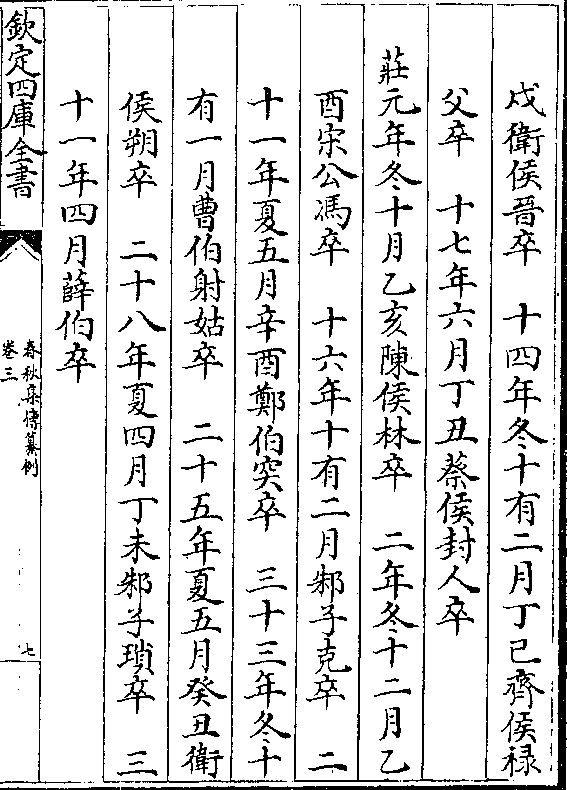 戍衛侯晉卒　十四年冬十有二月丁已齊侯禄
父卒　十七年六月丁丑蔡侯封人卒
莊元年冬十月乙亥陳侯林卒　二年冬十二月乙
酉宋公馮卒　十六年十有二月邾子克卒　二
十一年夏五月辛酉鄭伯突卒　三十三年冬十
有一月曹伯射姑卒　二十五年夏五月癸丑衛
侯朔卒　二十八年夏四月丁未邾子瑣卒　三
十一年四月薛伯卒
欽定四庫全書
春秋集傳纂例
卷三
七